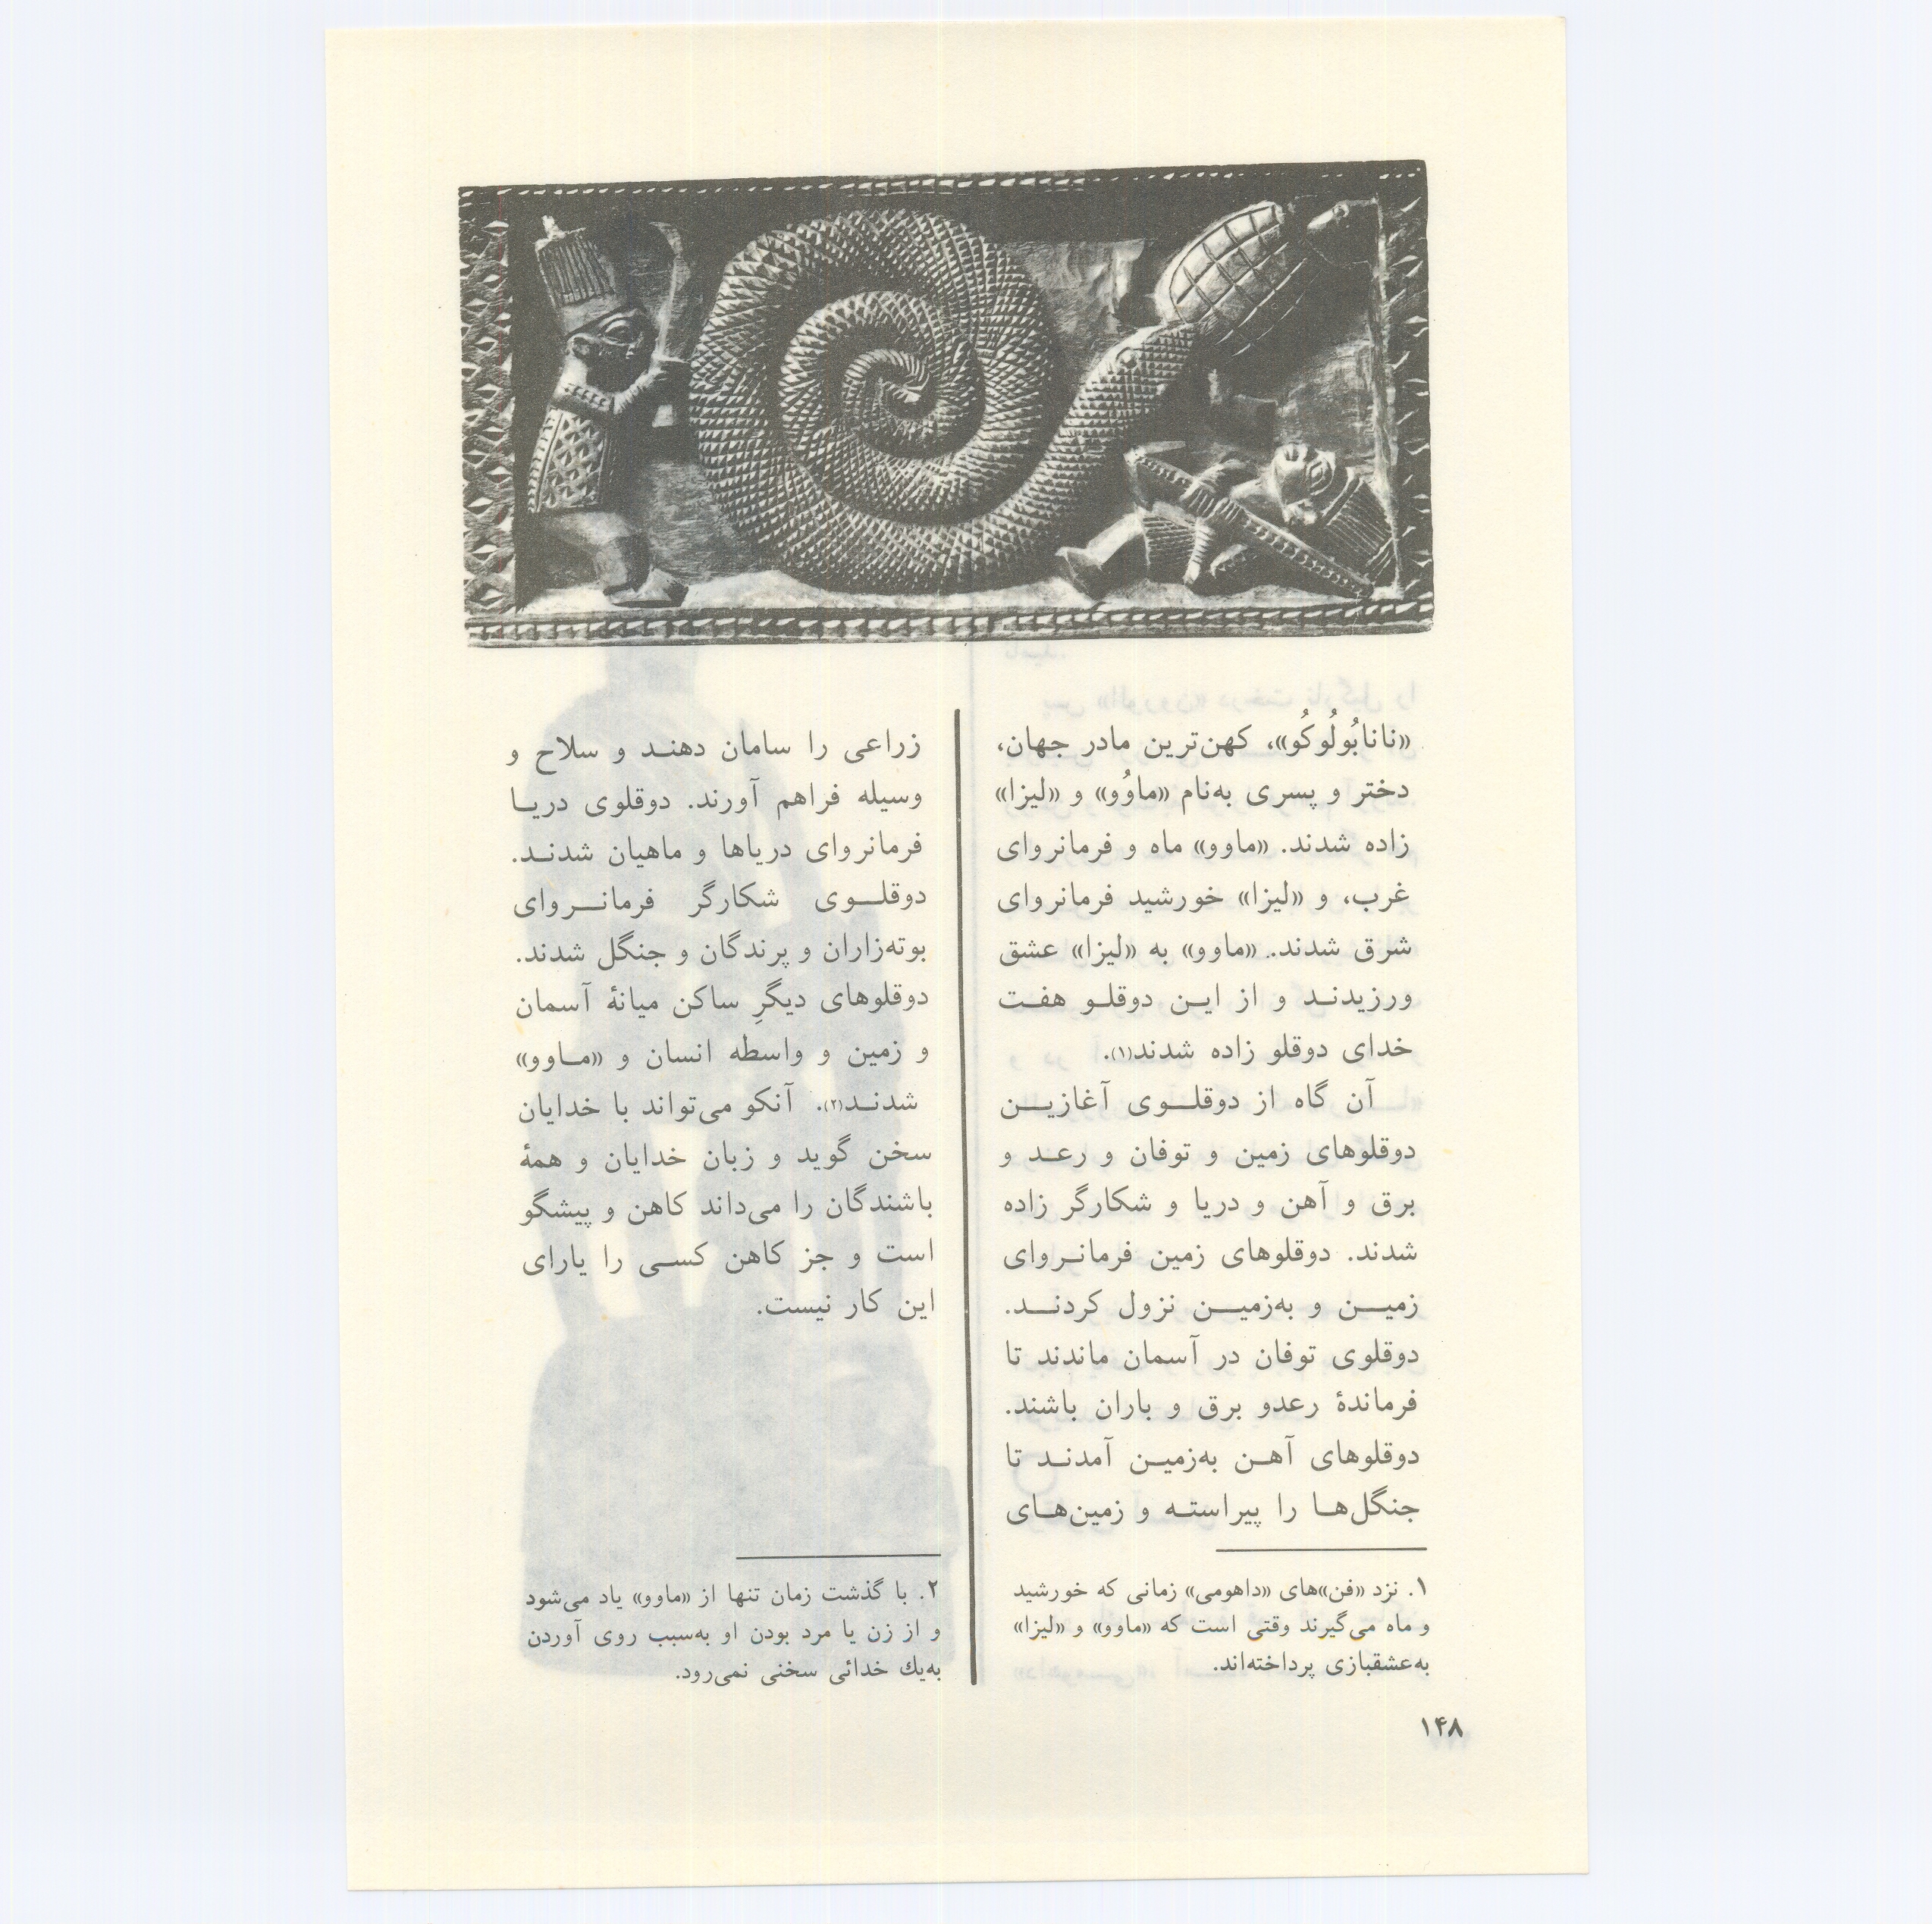 «نانابُولُوکُو»، کهن‌ترین مادر جهان،
دختر و پسری به‌نام «ماوُو» و «لیزا»
زاده شدند. «ماوو» ماه و فرمانروای
غرب، و «لیزا» خورشید فرمانروای
شرق شدند. «ماوو» به «لیزا» عشق
ورزیدند و از این دوقلو هفت
خدای دوقلو زاده شدند(۱).
آن گاه از دوقلوی آغازین
دوقلوهای زمین و توفان و رعد و
برق و آهن و دریا و شکارگر زاده
شدند. دوقلوهای زمین فرمانروای
زمین و به‌زمین نزول کردند.
دوقلوی توفان در آسمان ماندند تا
فرماندهٔ رعدو برق و باران باشند.
دوقلوهای آهن به‌زمین آمدند تا
جنگل‌ها را پیراسته و زمین‌های
۱. نزد «فن»های «داهومی» زمانی که خورشید
و ماه می‌گیرند وقتی است که «ماوو» و «لیزا»
به‌عشقبازی پرداخته‌اند.
زراعی را سامان دهند و سلاح و
وسیله فراهم آورند. دوقلوی دریا
فرمانروای دریاها و ماهیان شدند.
دوقلوی شکارگر فرمانروای
بوته‌زاران و پرندگان و جنگل شدند.
دوقلوهای دیگرِ ساکن میانهٔ آسمان
و زمین و واسطه انسان و «ماوو»
شدند(۲). آنکو می‌تواند با خدایان
سخن گوید و زبان خدایان و همهٔ
باشندگان را می‌داند کاهن و پیشگو
است و جز کاهن کسی را یارای
این کار نیست.
۲. با گذشت زمان تنها از «ماوو» یاد می‌شود
و از زن یا مرد بودن او به‌سبب روی آوردن
به‌یك خدائی سخنی نمی‌رود.
۱۴۸